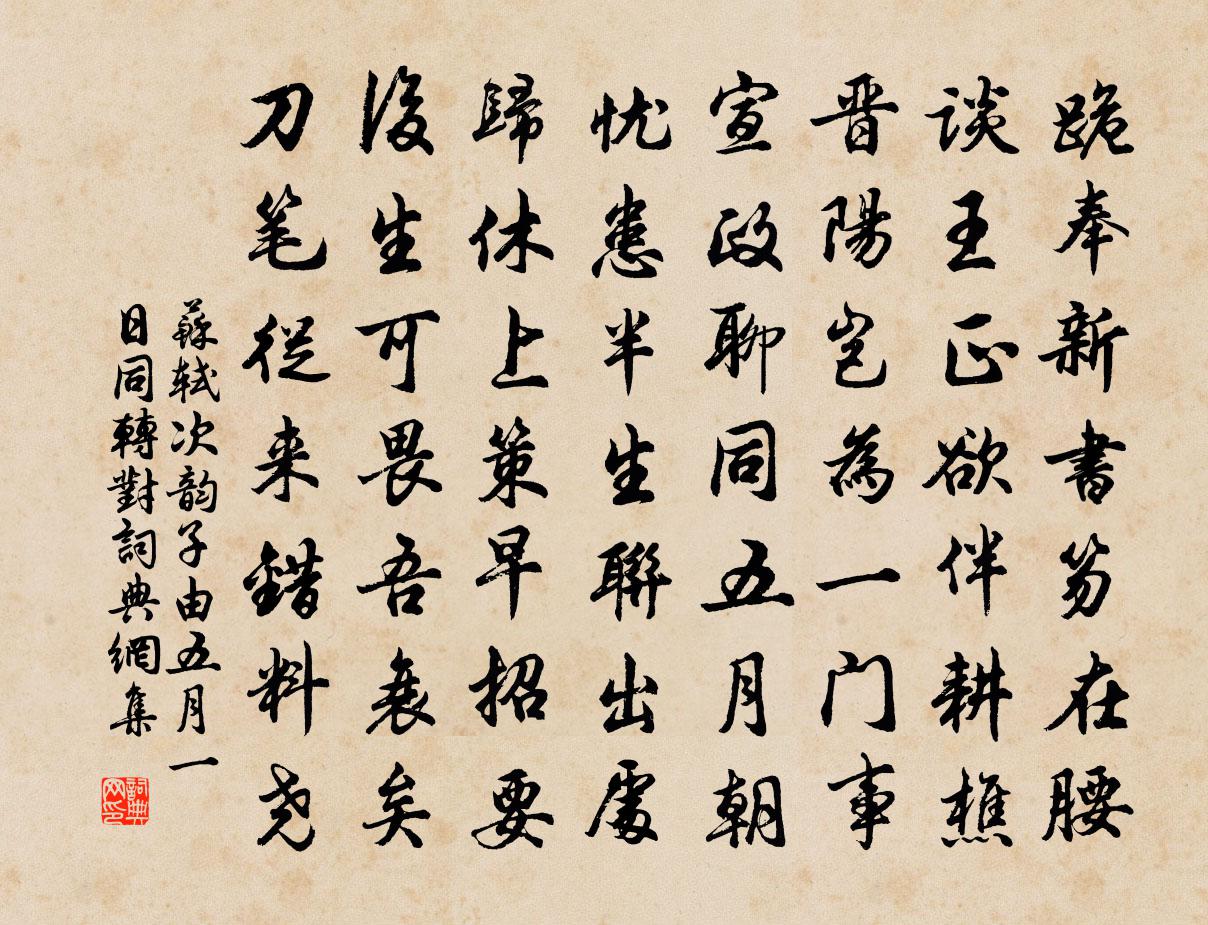 跪奉新書笏在腰
談王正欲伴耕樵
晋陽豈為一门事
宣政聊同五月朝
忧患半生聯出處
歸休上策早招要
後生可畏吾衰矣
刀笔從来錯料尧
蘇轼次韵子由五月一
日同轉對詞典網集
詞典
网印